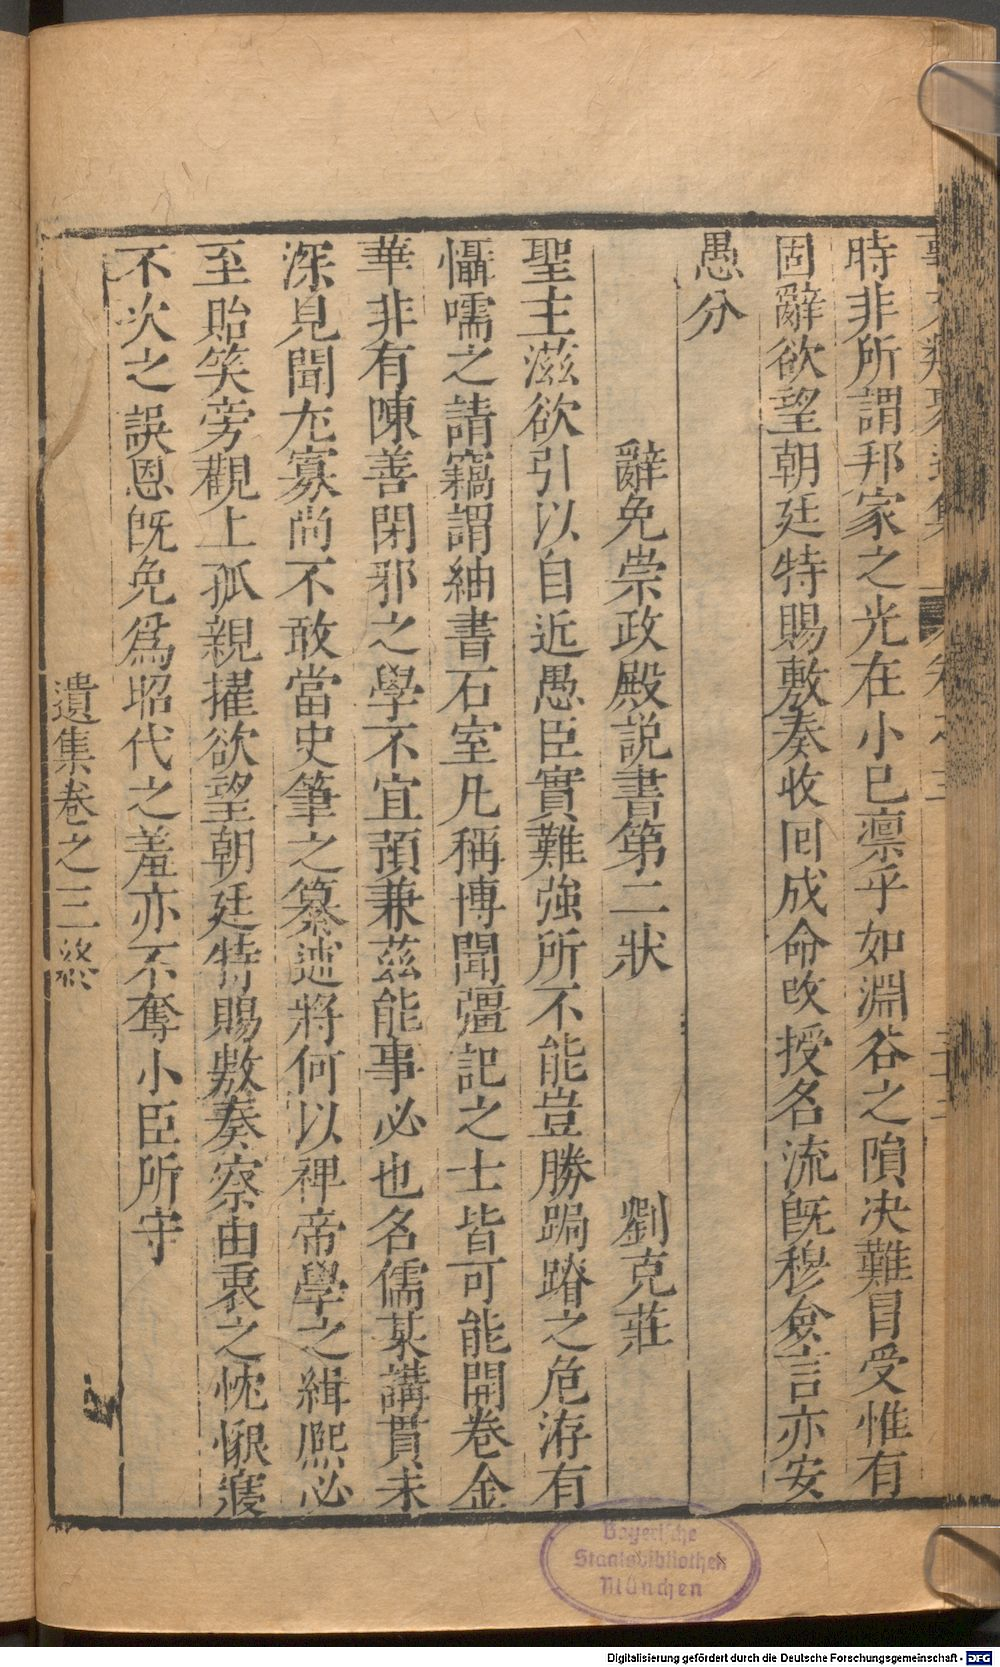 時非所謂邦家之光在小已凛乎如淵谷之隕决難冒受惟有
固辭欲望朝廷特賜敷奏收回成命改授名流旣穆僉言亦安
愚分
辭免崇政殿説書第二狀 劉克莊
聖主滋欲引以自近愚臣實難強所不能豈勝跼蹐之危洊有
懾嚅之請竊謂紬書石室凡稱博聞彊記之士皆可能開卷金
華非有陳善閉邪之學不宜預兼茲能事必也名儒某講貫未
深見聞尤寡尚不敢當史筆之纂述將何以裨帝學之緝熙必
至貽笑旁觀上孤親擢欲望朝廷特賜敷奏察由衷之忱悃寢
不次之誤恩旣免爲昭代之羞亦不奪小臣所守
遺集卷之三終
Bayerische
Staatsbibliothek
München
Digitalisierung gefördert durch die Deutsche Forschungsgemeinschaft - DFG